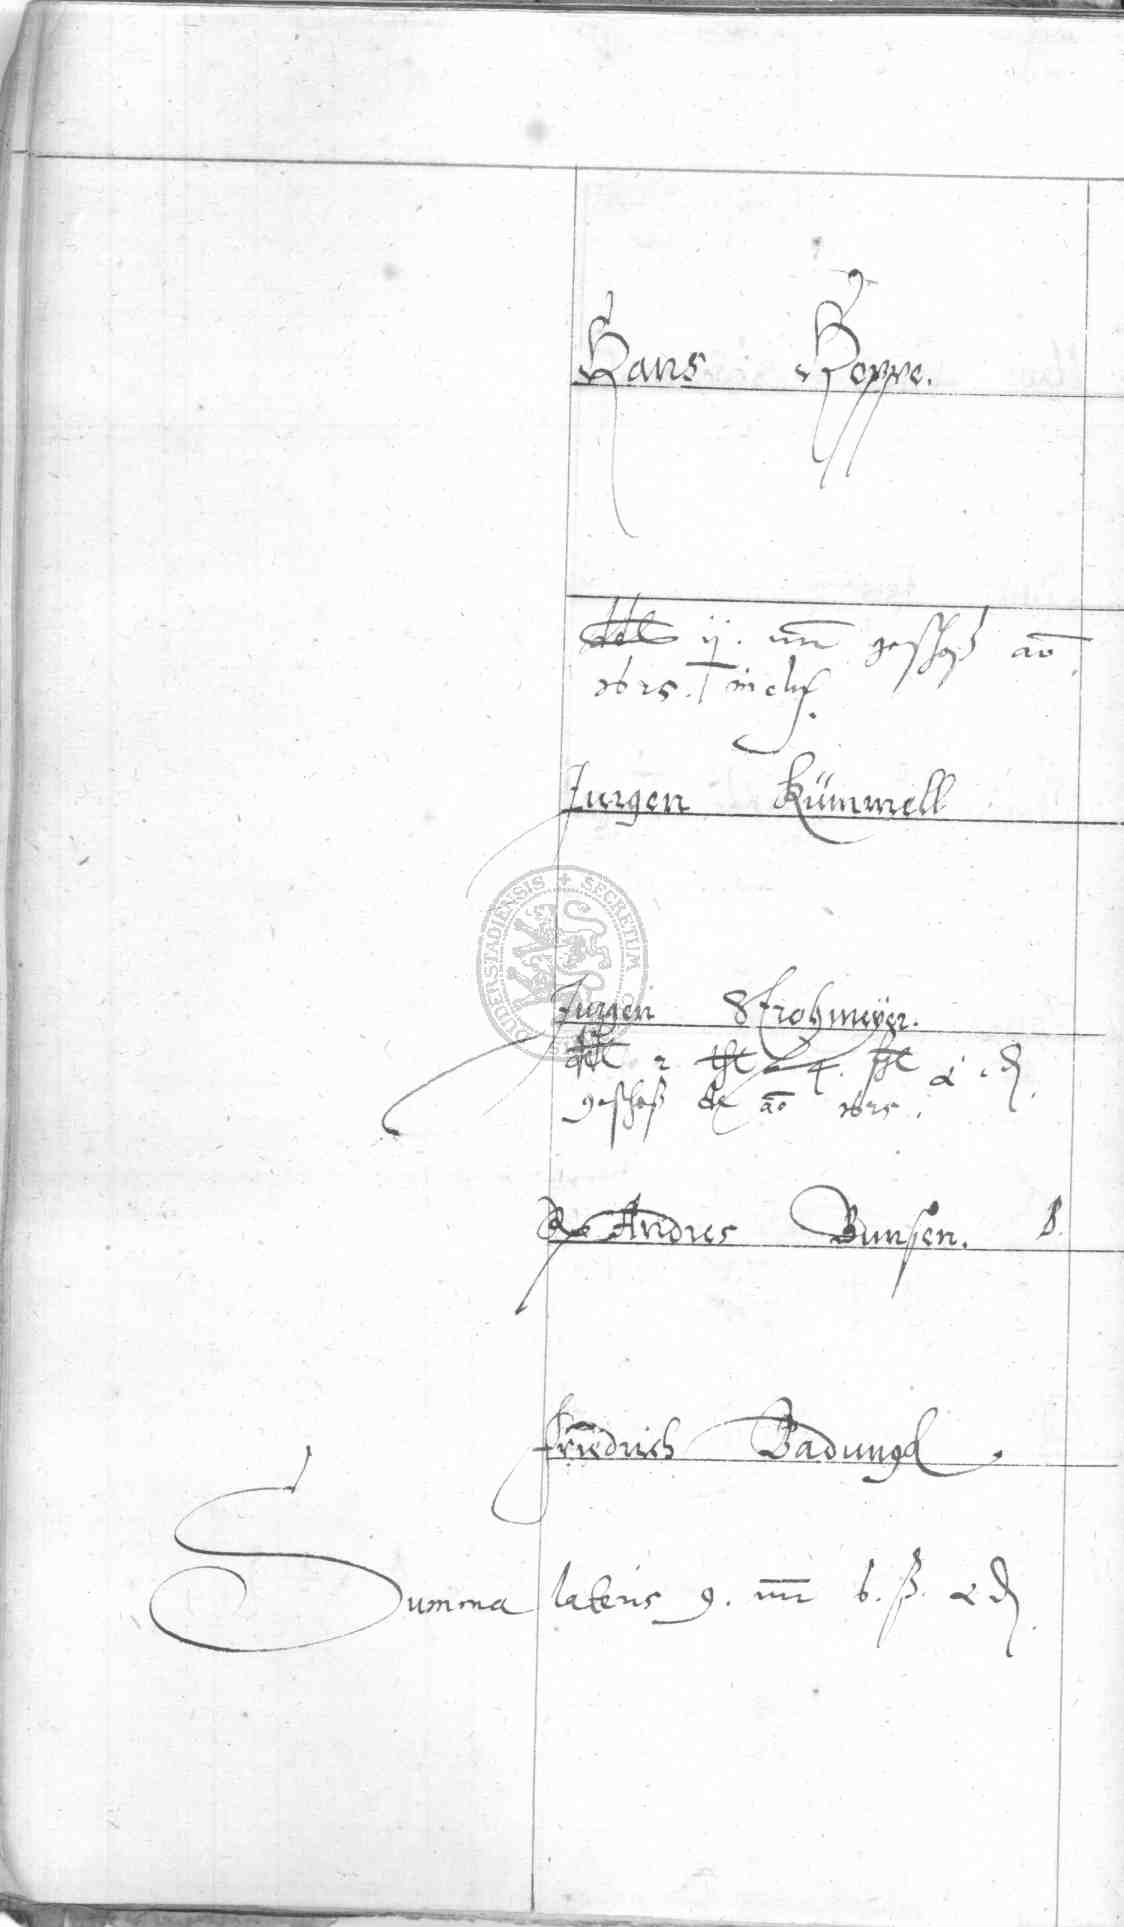 Hans Hoppe.
ddt ij. mr geschoß ao
1625. inclus.
Jurgen Kümmell
Jurgen Strohmeÿer.
ddt 2 thl 4. ßl α. ₰.
geschoß de ao 1625.
Andres Bunsen. B.
Friedrich Badungk.
Summa lateris 9. mr 6. ß. α ₰.
DUDERSTADIENSIS + SECRETUM